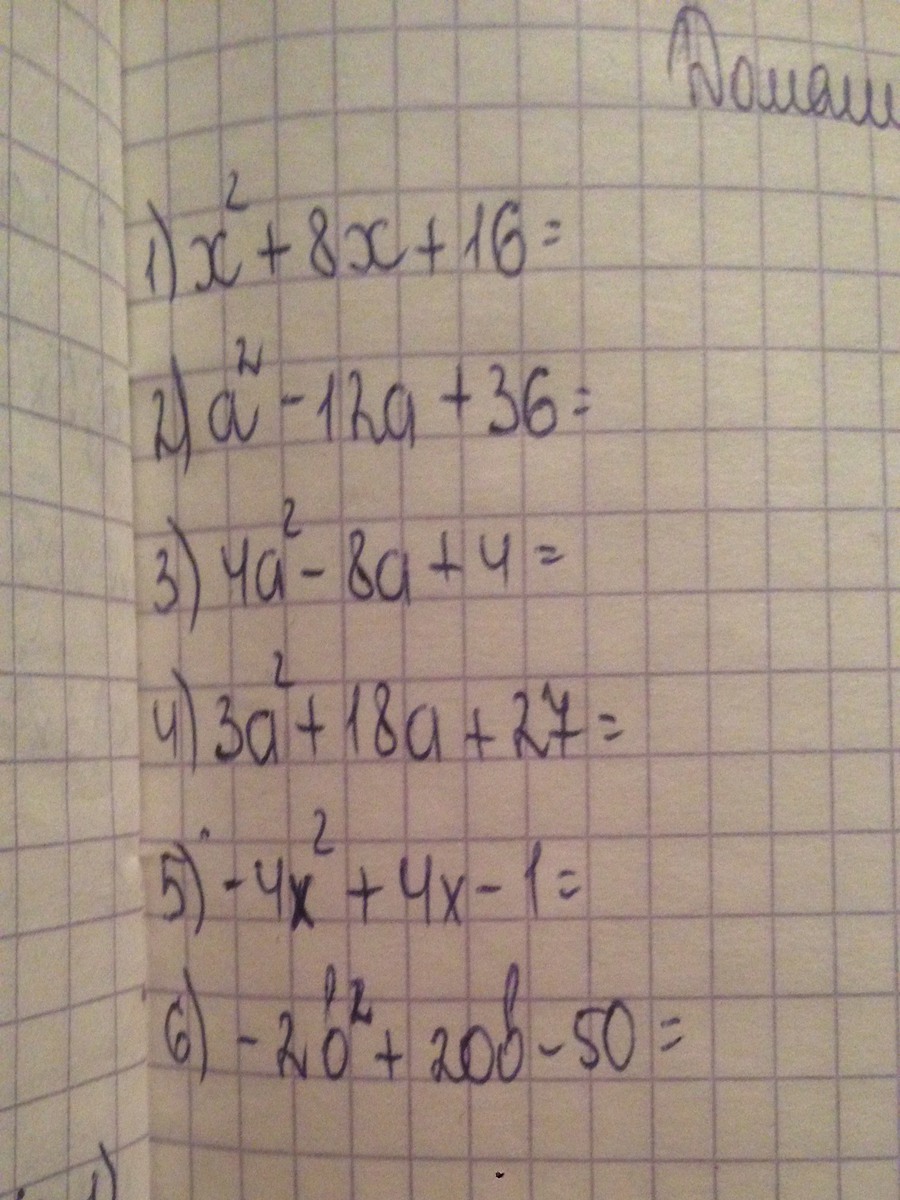 Домаш
1) x² + 8x + 16 =
2) a² - 12a + 36 =
3) 4a² - 8a + 4 =
4) 3a² + 18a + 27 =
5) -4x² + 4x - 1 =
6) -2b² + 20b - 50 =
1)